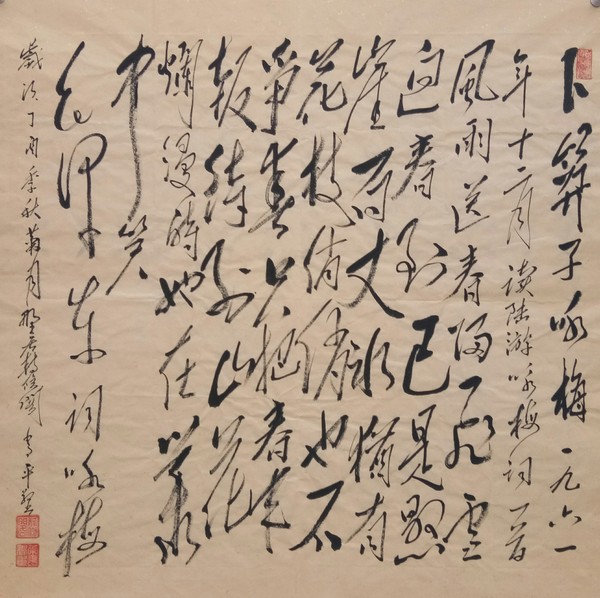 卜算子咏梅一九六一
年十二月读陆游咏梅词一首
風雨送春归飞雪
迎春到已是懸
崖百丈冰猶有
花枝俏俏也不
争春只把春来
報待到山花
爛漫時她在叢
中笑
毛泽东词咏梅
歲次丁酉季秋菊月